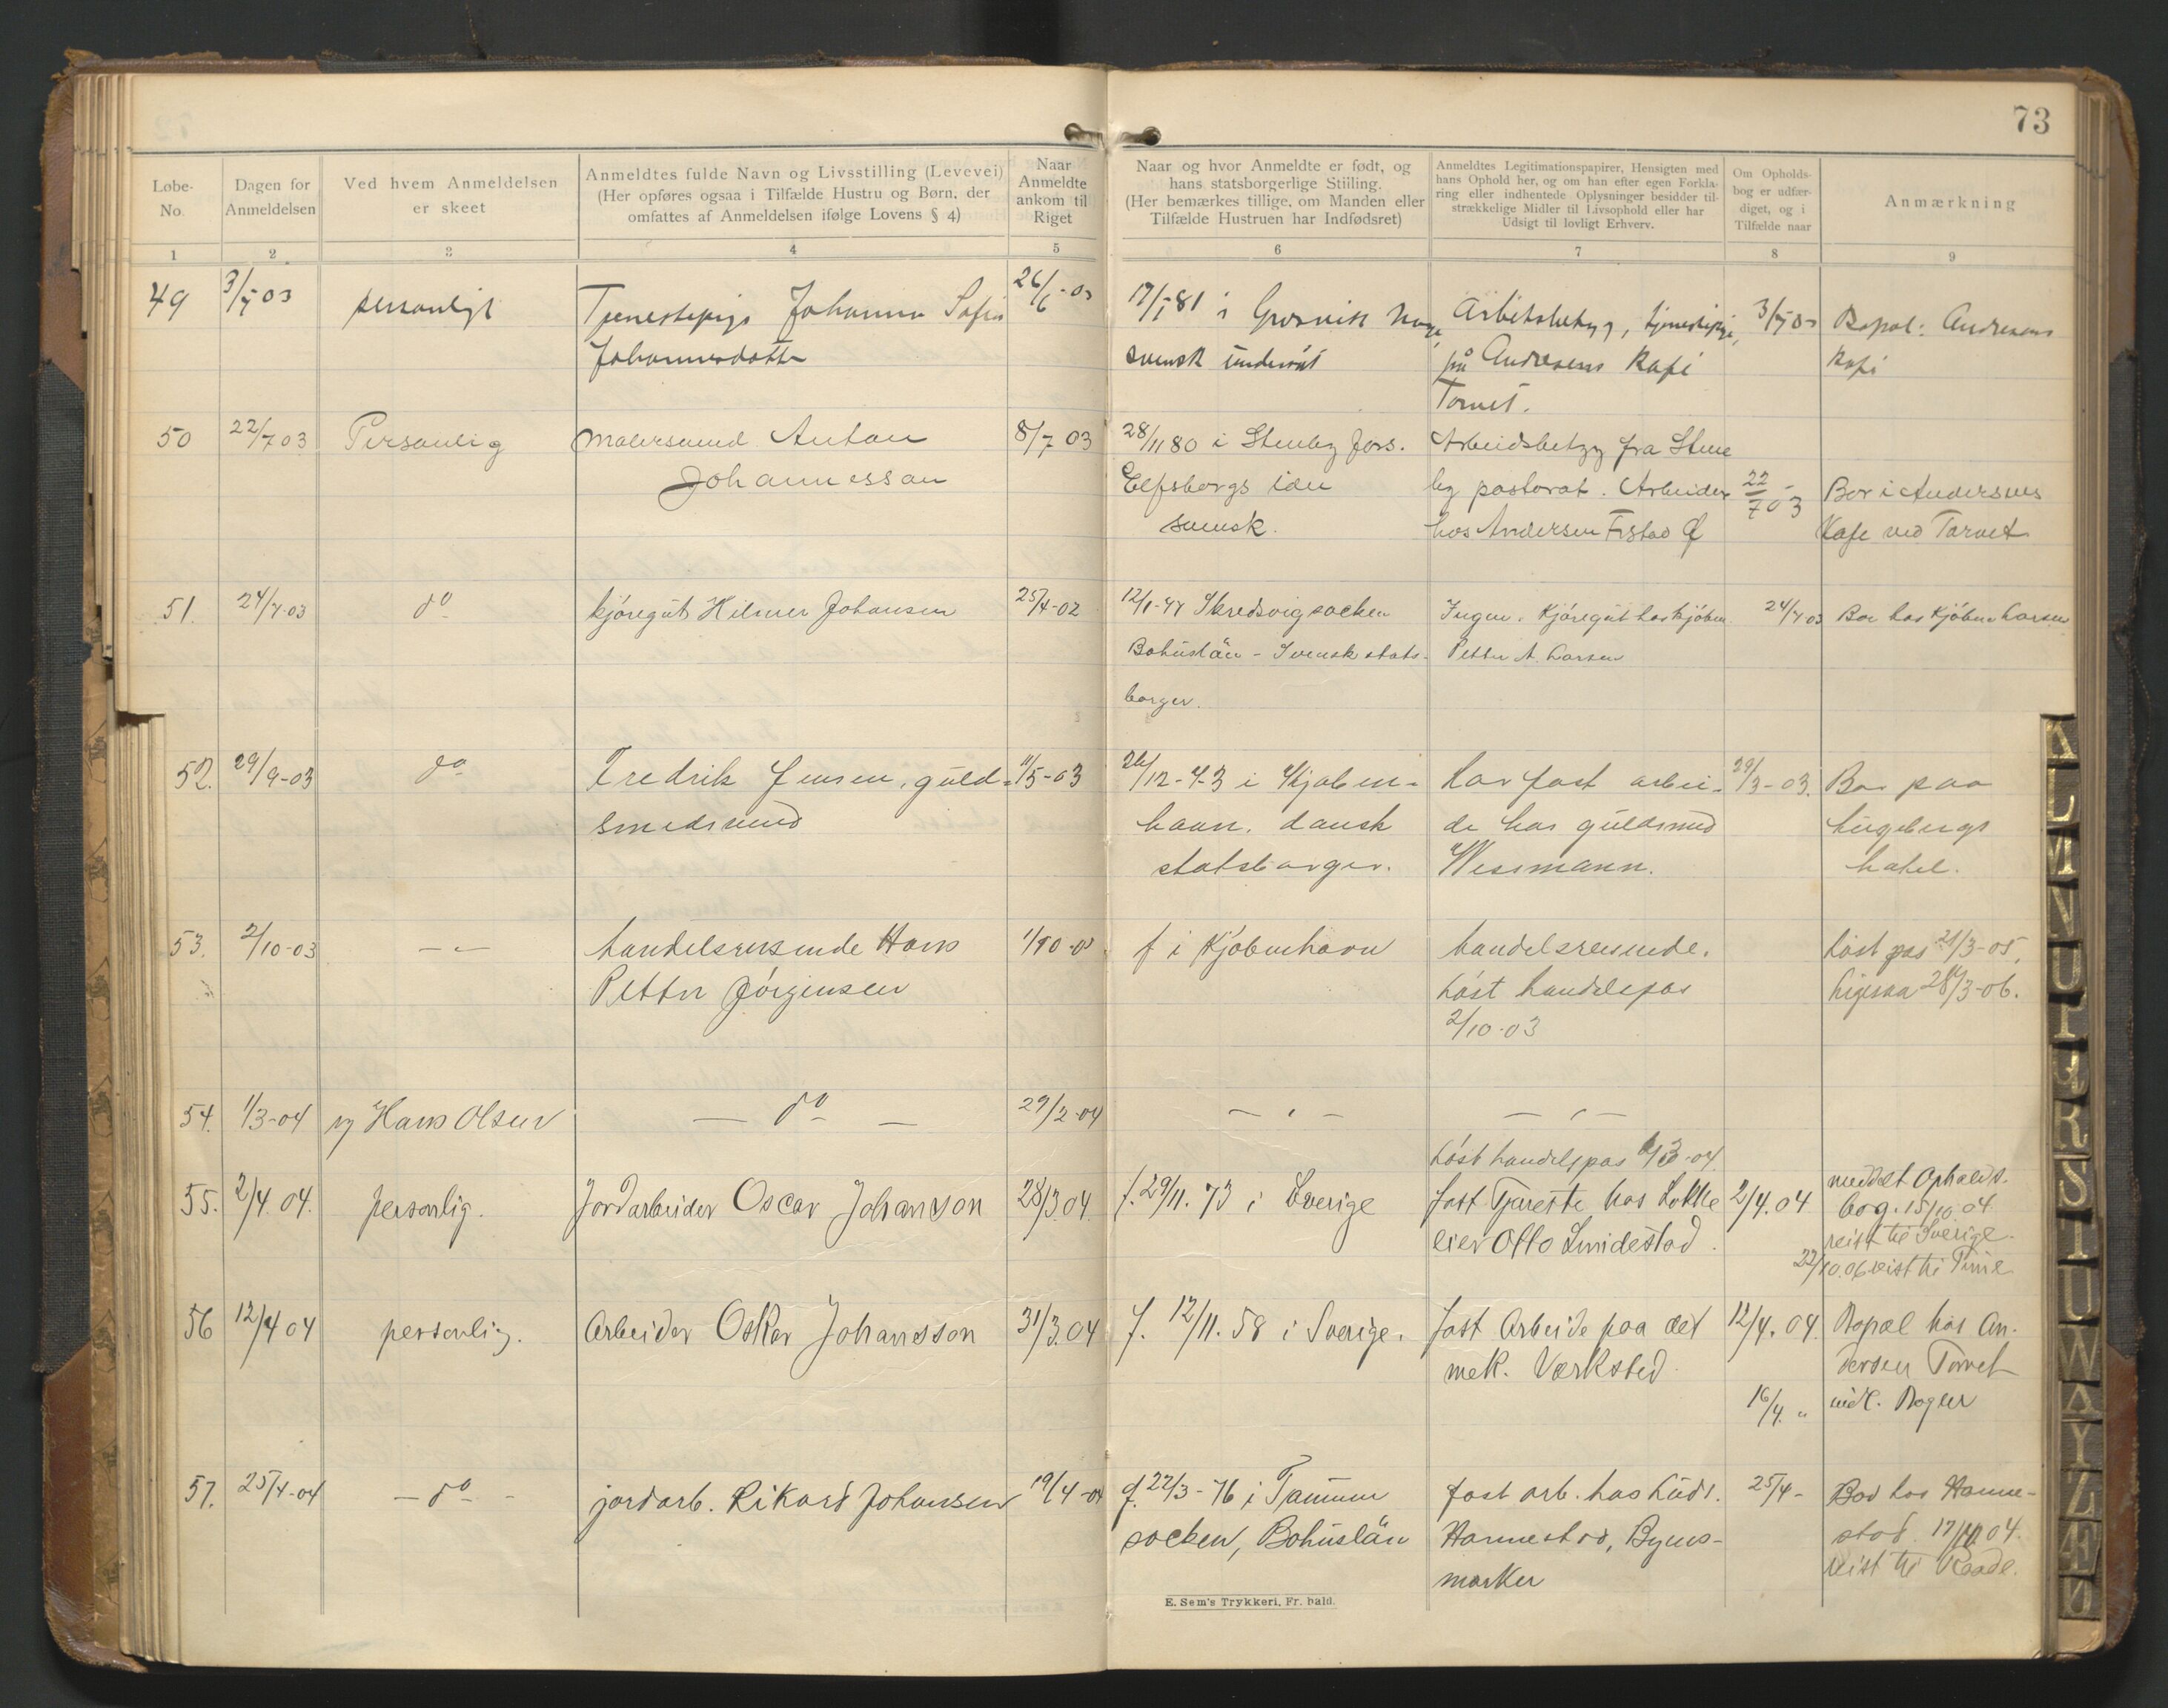 73
Løbe-
No.
Dagen for
Anmeldelsen
Ved hvem Anmeldelsen
er skeet
Anmeldtes fulde Navn og Livsstilling (Levevei)
(Her opføres ogsaa i Tilfælde Hustru og Børn, der
omfattes af Anmeldelsen ifølge Lovens § 4)
Naar
Anmeldte
ankom til
Riget
Naar og hvor Anmeldte er født, og
hans statsborgerlige Stilling.
(Her bemærkes tillige, om Manden eller
Tilfælde Hustruen har Indfødsret)
Anmeldtes Legitimationspapirer, Hensigten med
hans Ophold her, og om han efter egen Forkla-
ring eller indhentede Oplysninger besidder til-
strækkelige Midler til Livsophold eller har
Udsigt til lovligt Erhverv.
Om Opholds-
bog er udfær-
diget, og i
Tilfælde naar
Anmærkning
1 2 3 4 5 6 7 8 9
49 3/7 03 personligt Tjenestepige Johanna Sofia 26/6-03 17/5 81 i
Johannesdotter svensk undersåt på Andresens Kafe Kafe
Torvet.
50 22/7 03 Personlig Malersvend Anton 8/7 03 28/11 80 i Stenby fors. Arbeidsbetyg fra Stene
Johannesson Elfsborgs län by pastorat. Arbeider 22/7 03 Bor i Andersens
svensk. hos Andersen Kafe ved Torvet
51. 24/7-03 do kjøregut Hilmer Johansen 25/4-02 Skredsvig socken Ingen. Kjøregut hos kjøbm. 24/7 03 Bor hos Kjøbm Larsen
Bohuslän - Svensk stats- Petter A. Larsen
borger.
52. 29/9-03 do Fredrik Jensen, guld- 11/5-03 26/12-43 i Kjøben- Har fast arbei- 29/3-03. Bor paa
smedsvend havn. dansk de hos guldsmed
statsborger. Wessmann. hotel.
53. 2/10-03 — " — handelsreisende Hans f i Kjøbenhavn handelsreisende. Løst pas 21/3-05,
Petter Jörgensen Løst handelspas Ligesaa 28/3-06.
2/10-03
54. 1/3-04 v/ Hans Olsen — do — 29/2-04 — " — — " —
Løst handelspas
55. 2/4. 04. personlig. Jordarbeider Oscar Johanson 28/3 04. f. 29/11. 73 i Sverige fast Tjeneste hos Løkke 2/4. 04 meddelt Opholds-
eier Otto Smidestad. bog. 15/10 04
reist til Sverige.
22/10.06 reist til Tune
56 12/4 04 personlig. Arbeider Oskar Johansson 31/3.04 f. 12/11. 58 i Sverige. fast Arbeide paa det 12/4. 04. Bopæl hos An-
mek. Værksted. dersen Torvet
16/4. " indl. Bogen
57. 25/4-04 — do — jordarb. Rikard Johansen 19/4-04 f. 22/3-76 i Tanum fast arb. hos Gdbr. 25/4- Bor hos Hanne-
socken, Bohuslän Hannestad, Bymarker stad. 04.
reist til Raade.
E. Sem's Trykkeri, Fr. hald.
K
L
M
N
O
P
R
S
T
U
W
A
Y
Z
Æ
Ø